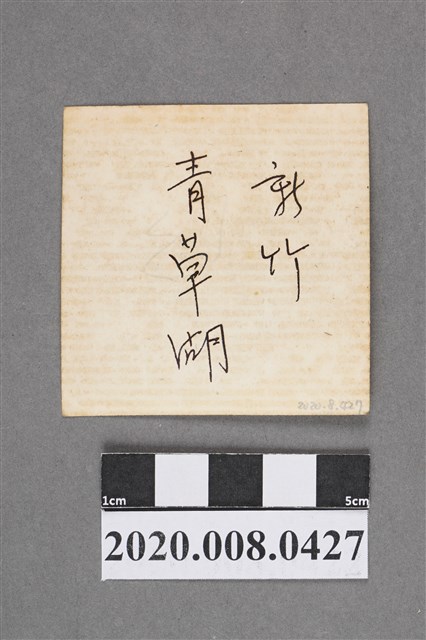 新竹
青草湖
2020.8.427
1cm
5cm
2020.008.0427